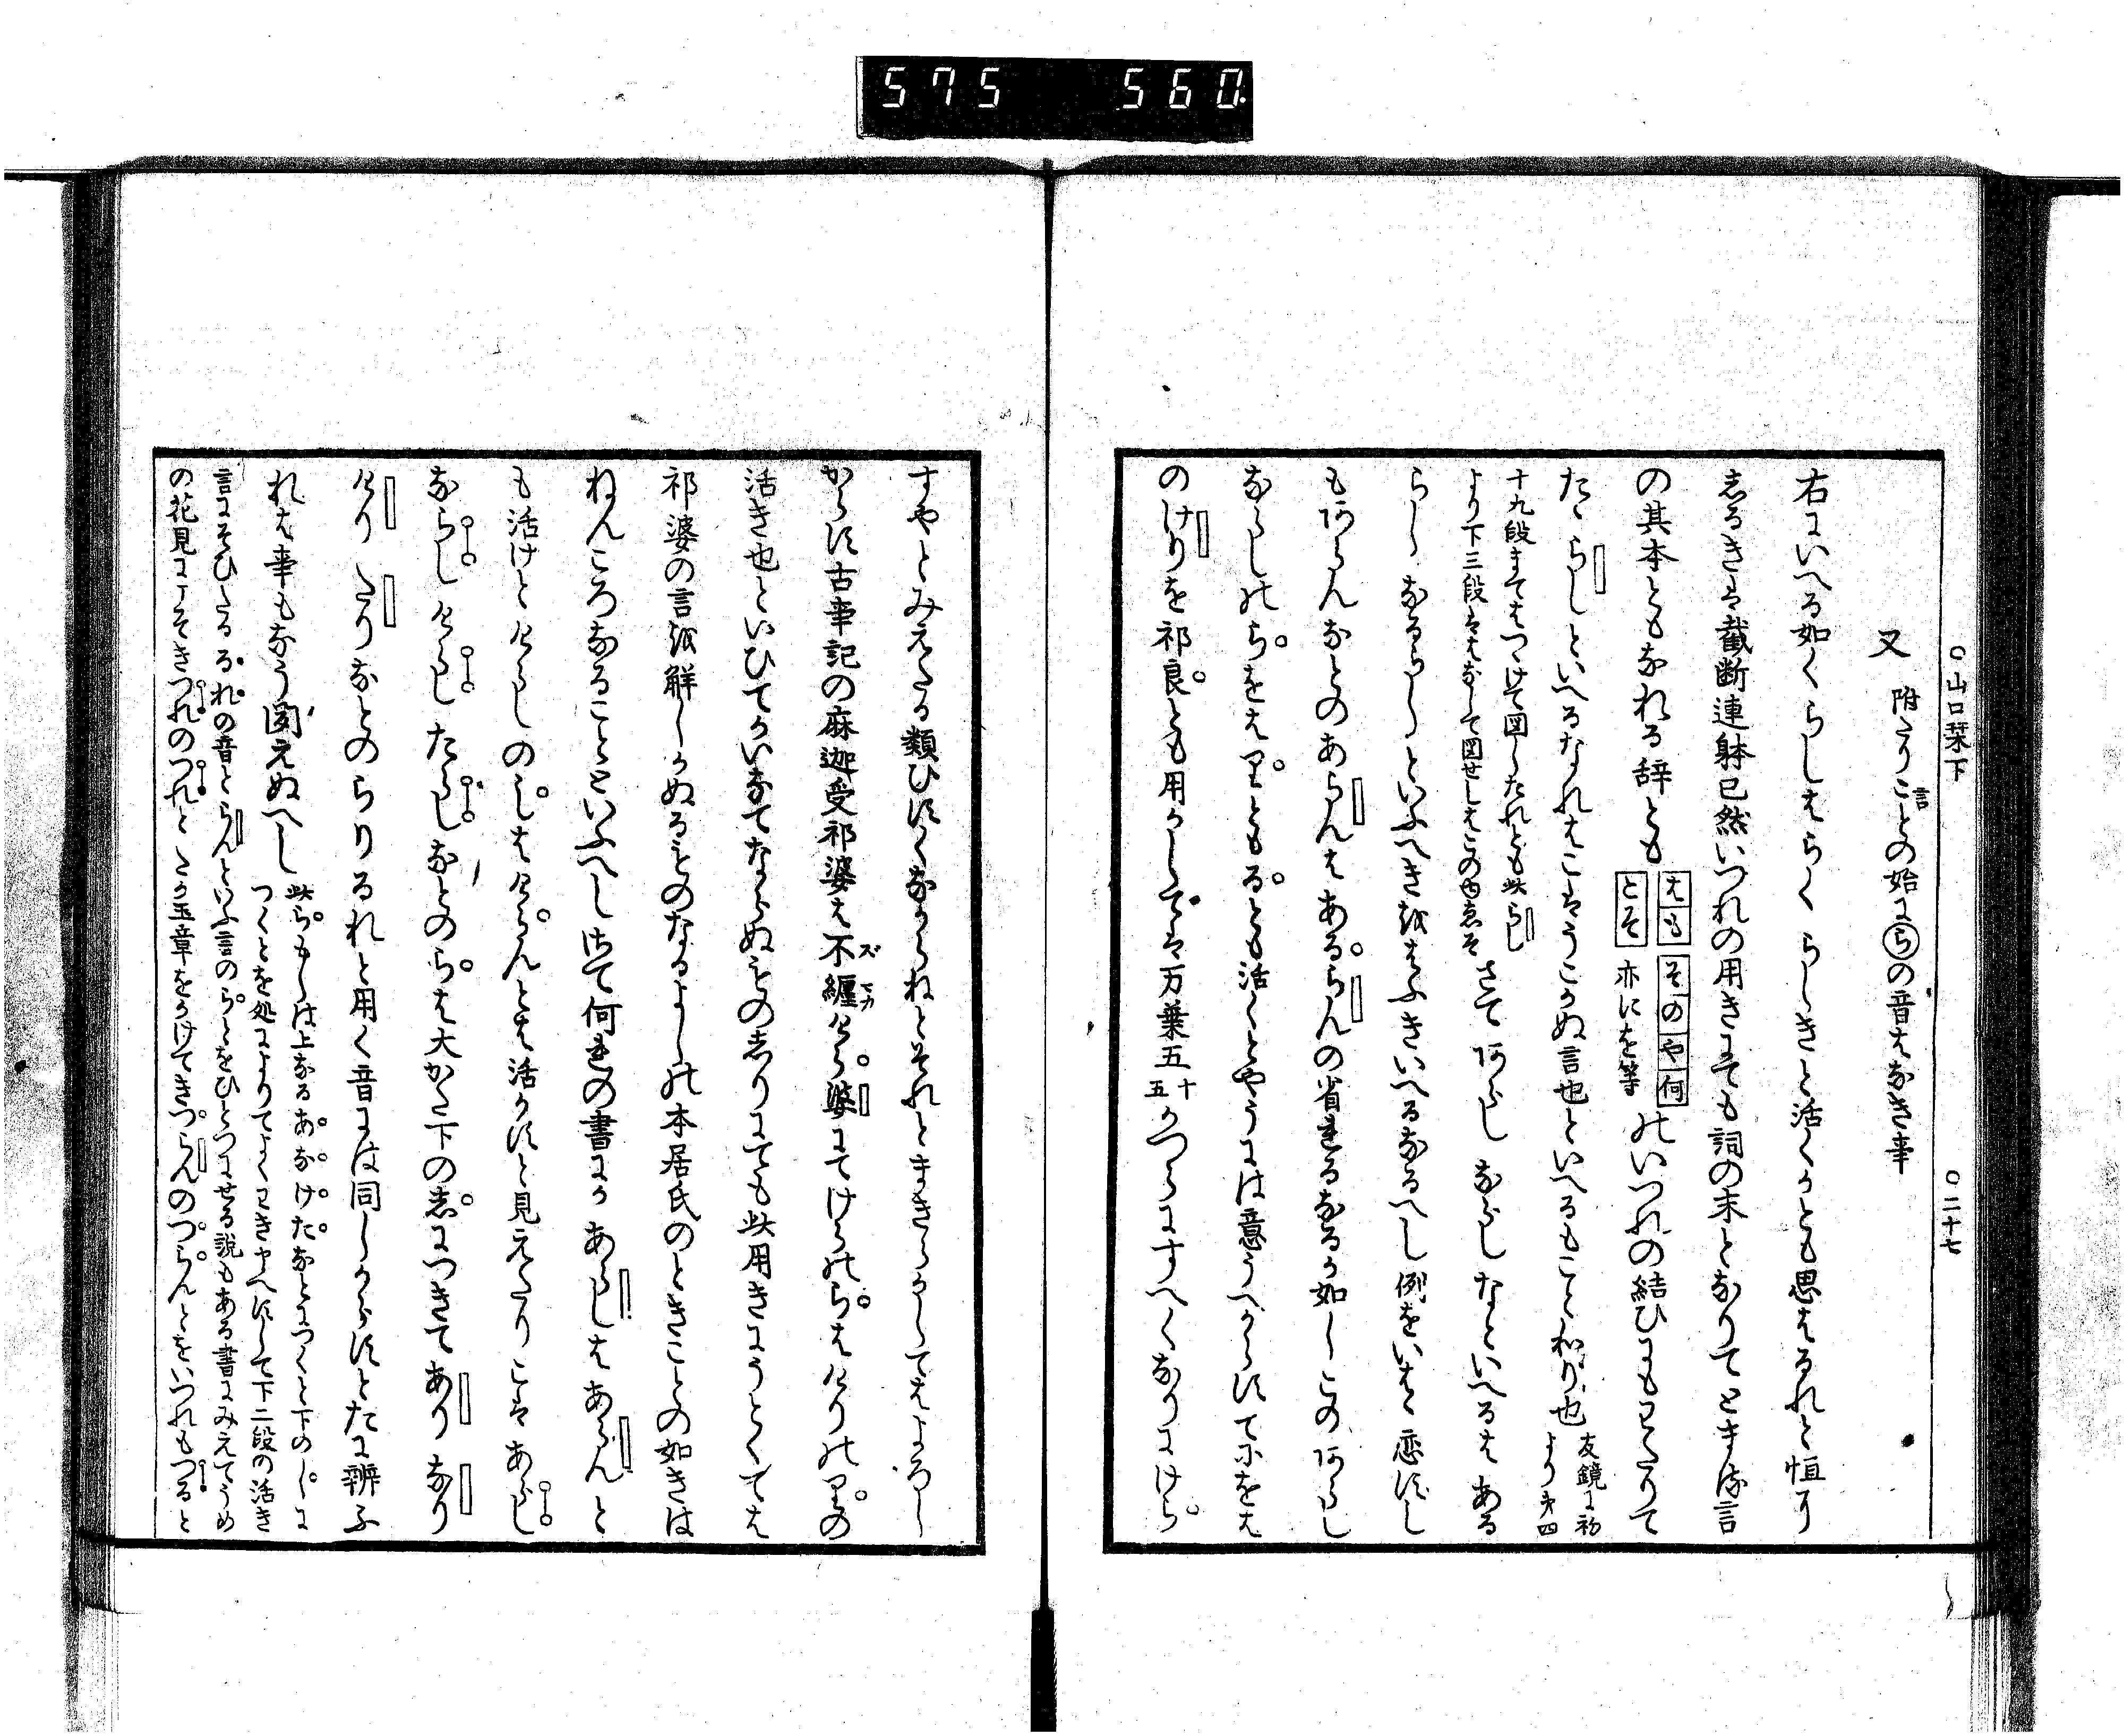 575 560
○山口栞下 ○二十七
又 附たりことの始に㋶の音はなき事
言
右にいへる如くらしはらく らしきと活くかとも思はるれと恒に
しるきは截断連躰已然いつれの用きにても詞の末となりてとまる言
の其本ともなれる辞とも はも とそ そのや何 亦にを等 のいつれの結ひにもわたりて
たゝらしといへるなれはこはうこかぬ言也といへるもことわり也 友鏡に初より第四
十九段まてはつゝけて図したれとも此らし
より下三段ははなして図せしはこのゆゑそ さてあらし ならしなといへるはある
らし なるらしといふへきをはふきいへるなるへし例をいはゝ恋すし
もあらんなとのあらんはあるらんの省れるなるか如しこのあらし
ならしのらをはりともるとも活くとやうには意うへからすてにをは
のけりを祁良とも用かしては万葉五 十五 かつらにすへくなりにけら
すやとみえたる類ひすくなからねとそれとまきらかしてはよろし
からす古事記の麻迦受祁婆は不纏けら婆にてけらのらはけりのりの
ズ マカ
活き也といひてかいなてならぬものしりにても此用きにうとくては
祁婆の言を解しかぬるものなるよしの本居氏のときことの如きは
ねんころなることといふへしさて何れの書にかあらしはあらんと
も活けとけらしのしはけらんとは活かすと見えたりこはあらし
ならし けらし たらしなとのらは大かた下のしにつきてあり なり
けり たりなとのらりるれと用く音には同しからすとたに辨ふ
れは事もなう聞えぬへし 此らもしは上なるあなけたなとにつくと下のしに
つくとを処によりてよくわきまへすして下二段の活き
言にそひたるるれの音とらんといふ言のらとをひとつにせる説もある書にみえてうめ
の花見にこそきつれのつれとたか玉章をかけてきつらんのつらんとをいつれもつると